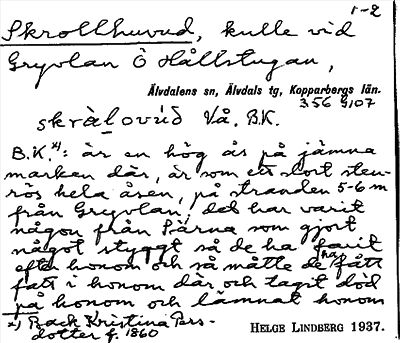 1-2
Skrollhuvud, kulle vid
Gryvlan Ö Hållstugan,
Älvdalens sn, Älvdals tg, Kopparbergs län.
356 9107
skràlovúd Vå. B.K.
B.K.x): är en hög ås på jämna
marken där, är som ett stort sten-
rös hela åsen, på stranden 5-6 m
från Gryvlan, det har varit
någon från Särna som gjort
något styggt så de ha farit
efter honom och så måtte de ha fått
fatt i honom där och tagit död
på honom och lämnat honom
x) Back Kristina Pers-
dotter f. 1860
HELGE LINDBERG 1937.